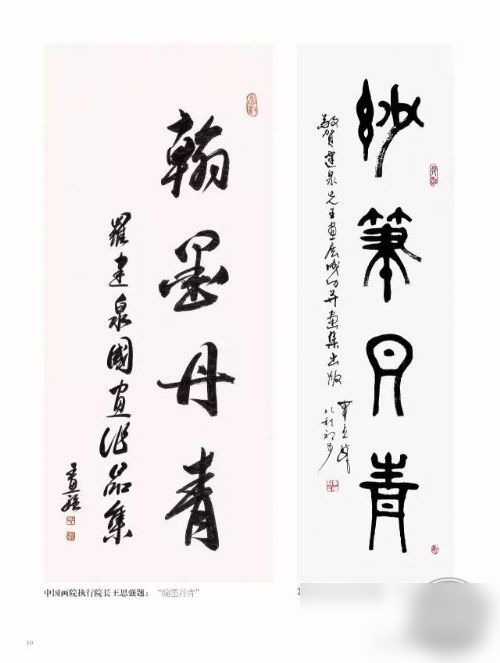 翰墨丹青
羅建泉國画作品集
妙筆丹青
敬贺建泉先生画展成功并画集出版
中国画院执行院长王思强题：“翰墨丹青”
10